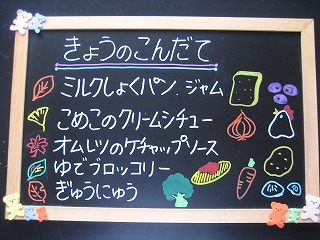 きょうのこんだて
ミルクしょくパン、ジャム
こめこのクリームシチュー
オムレツのケチャップソース
ゆでブロッコリー
ぎゅうにゅう